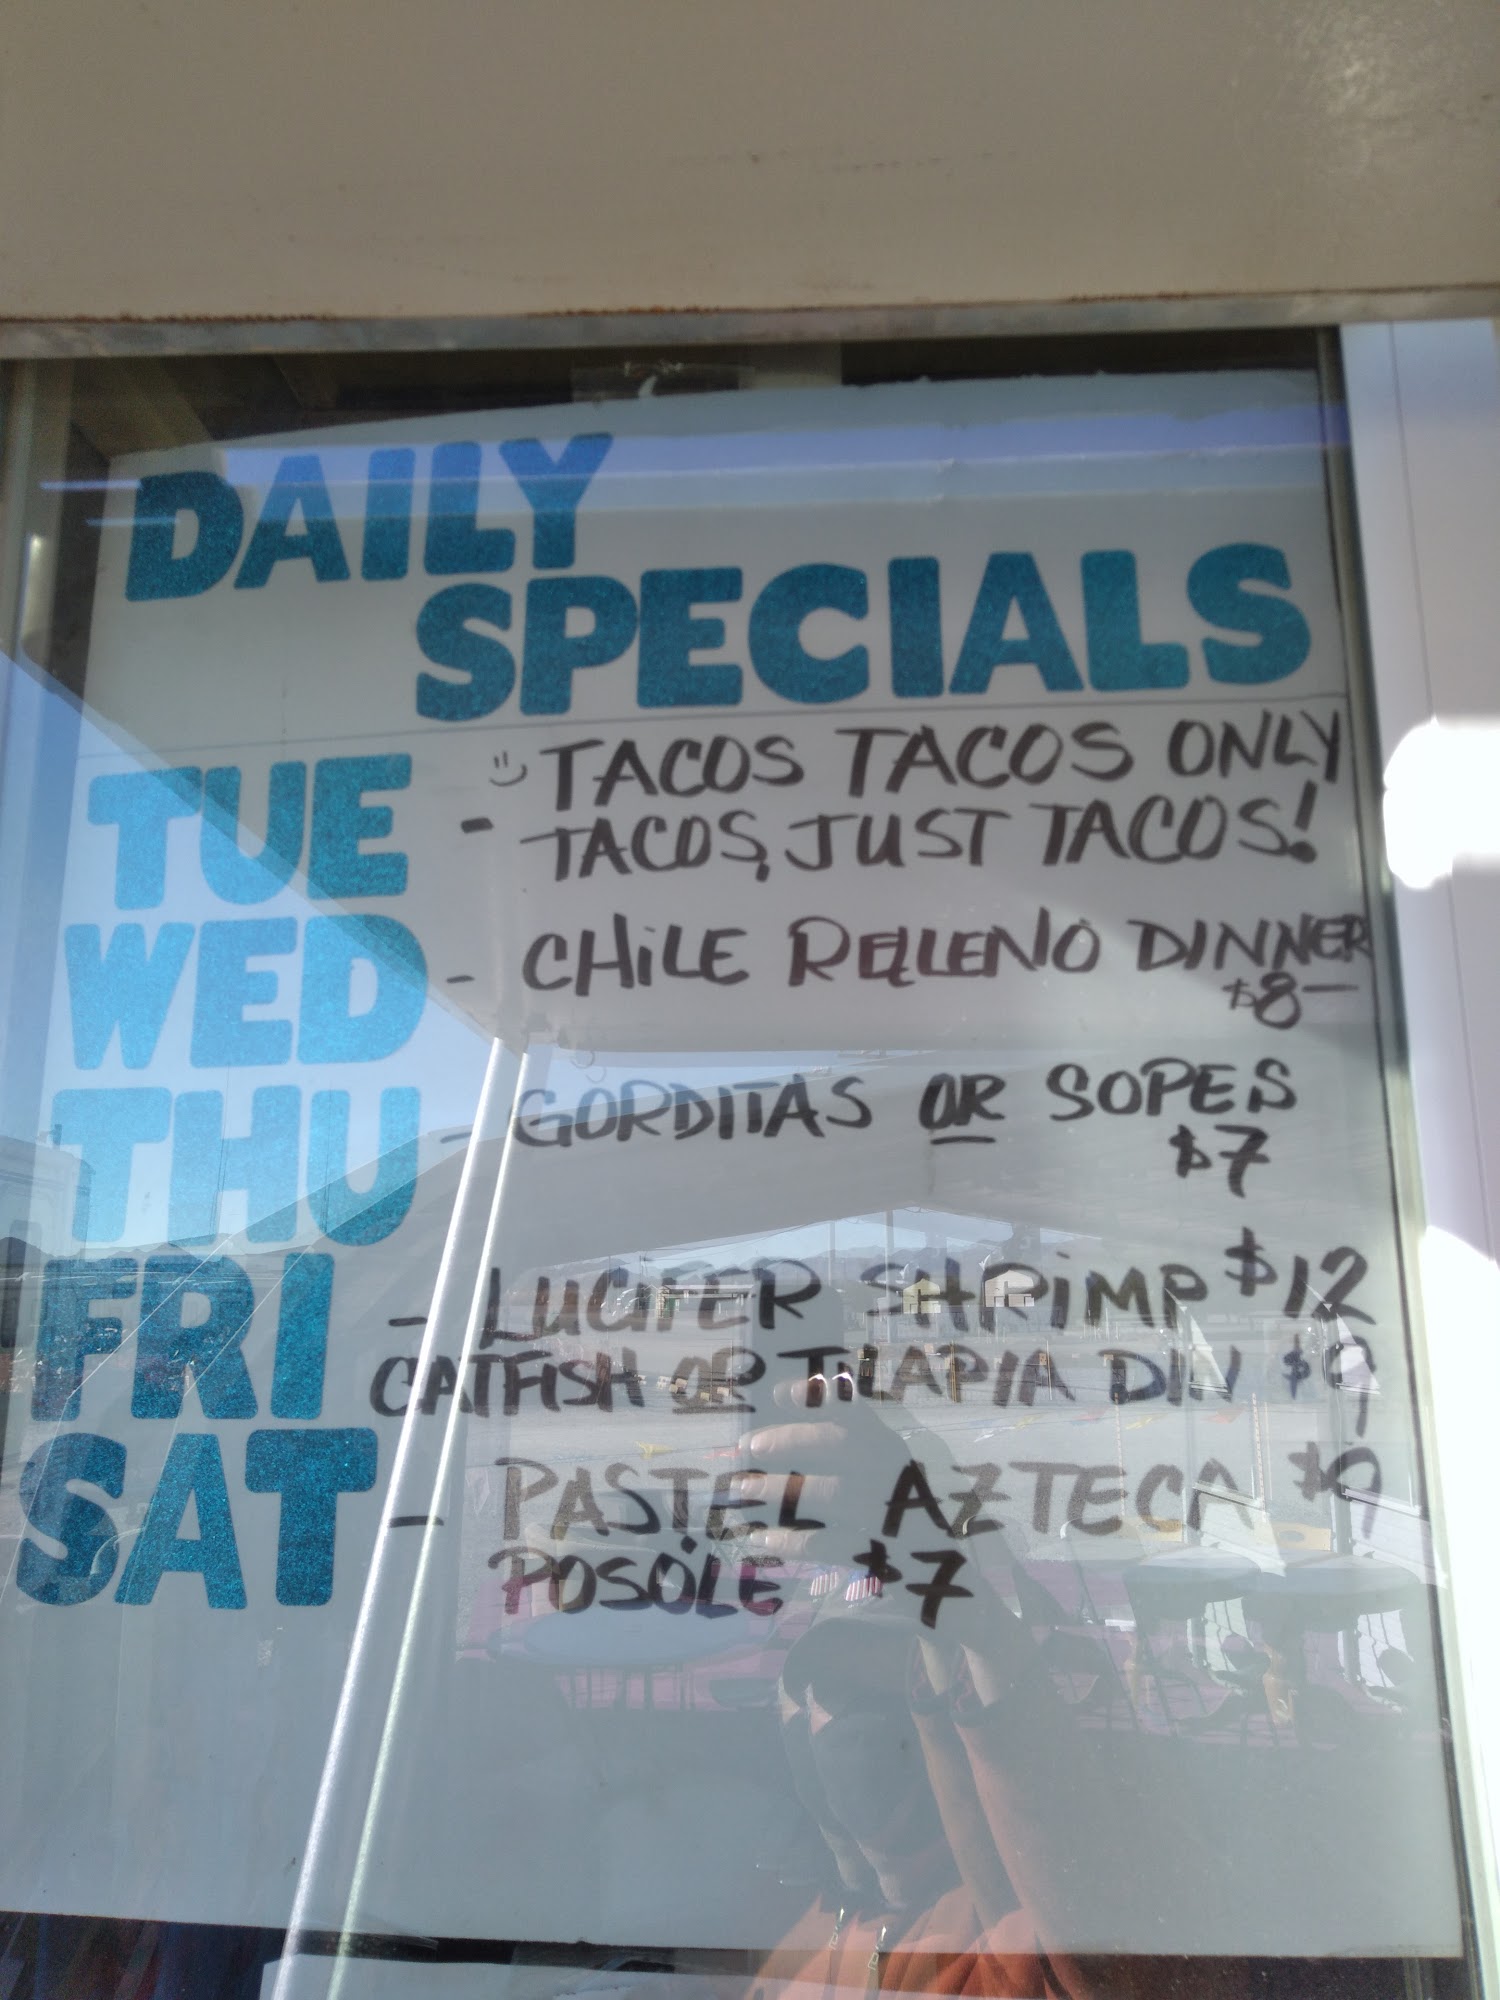 DAILY
SPECIALS
TUE - TACOS TACOS ONLY
TACOS, JUST TACOS!
WED - CHiLE RELLENO DINNER
$8—
THU - GORDITAS OR SOPES
$7
FRI - LUCIFER SHRiMP $12
CATFISH OR TILAPIA DIN $9
SAT - PASTEL AZTECA $9
POSOLE $7